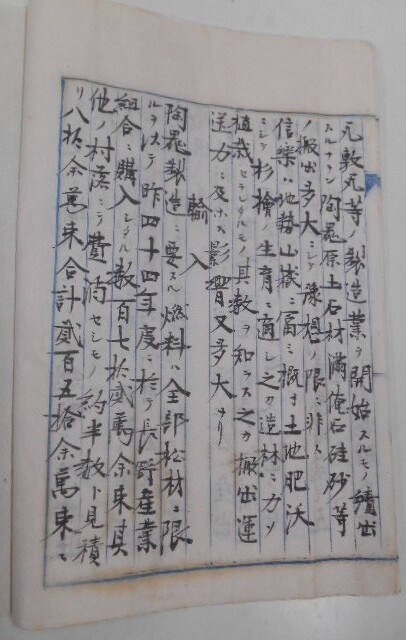 元敷瓦等ノ製造業ヲ開始スルモノ續出
スルナラン陶器原土石材満俺石硅砂等
ノ搬出多大ニシテ豫想ノ限ニ非ス
信樂ハ地勢山嶽ニ富ミ概ネ土地肥沃
ニシテ杉檜ノ生育ニ適シ之カ造林ニ力ヲ
植栽セラレタルモノ其数ヲ知ラス之カ搬出運
送力ニ及ホス影響又多大ナリ
輸入
陶器製造ニ要スル燃料ハ全部松材ニ限
ルヲ以テ昨四十四年度ニ於テ長野産業
組合ニ購入シタル数百七拾貳萬余束其
他ノ村落ニテ費消セシモノ約半数ト見積
リ八拾余萬束合計貳百五拾余萬束ニ